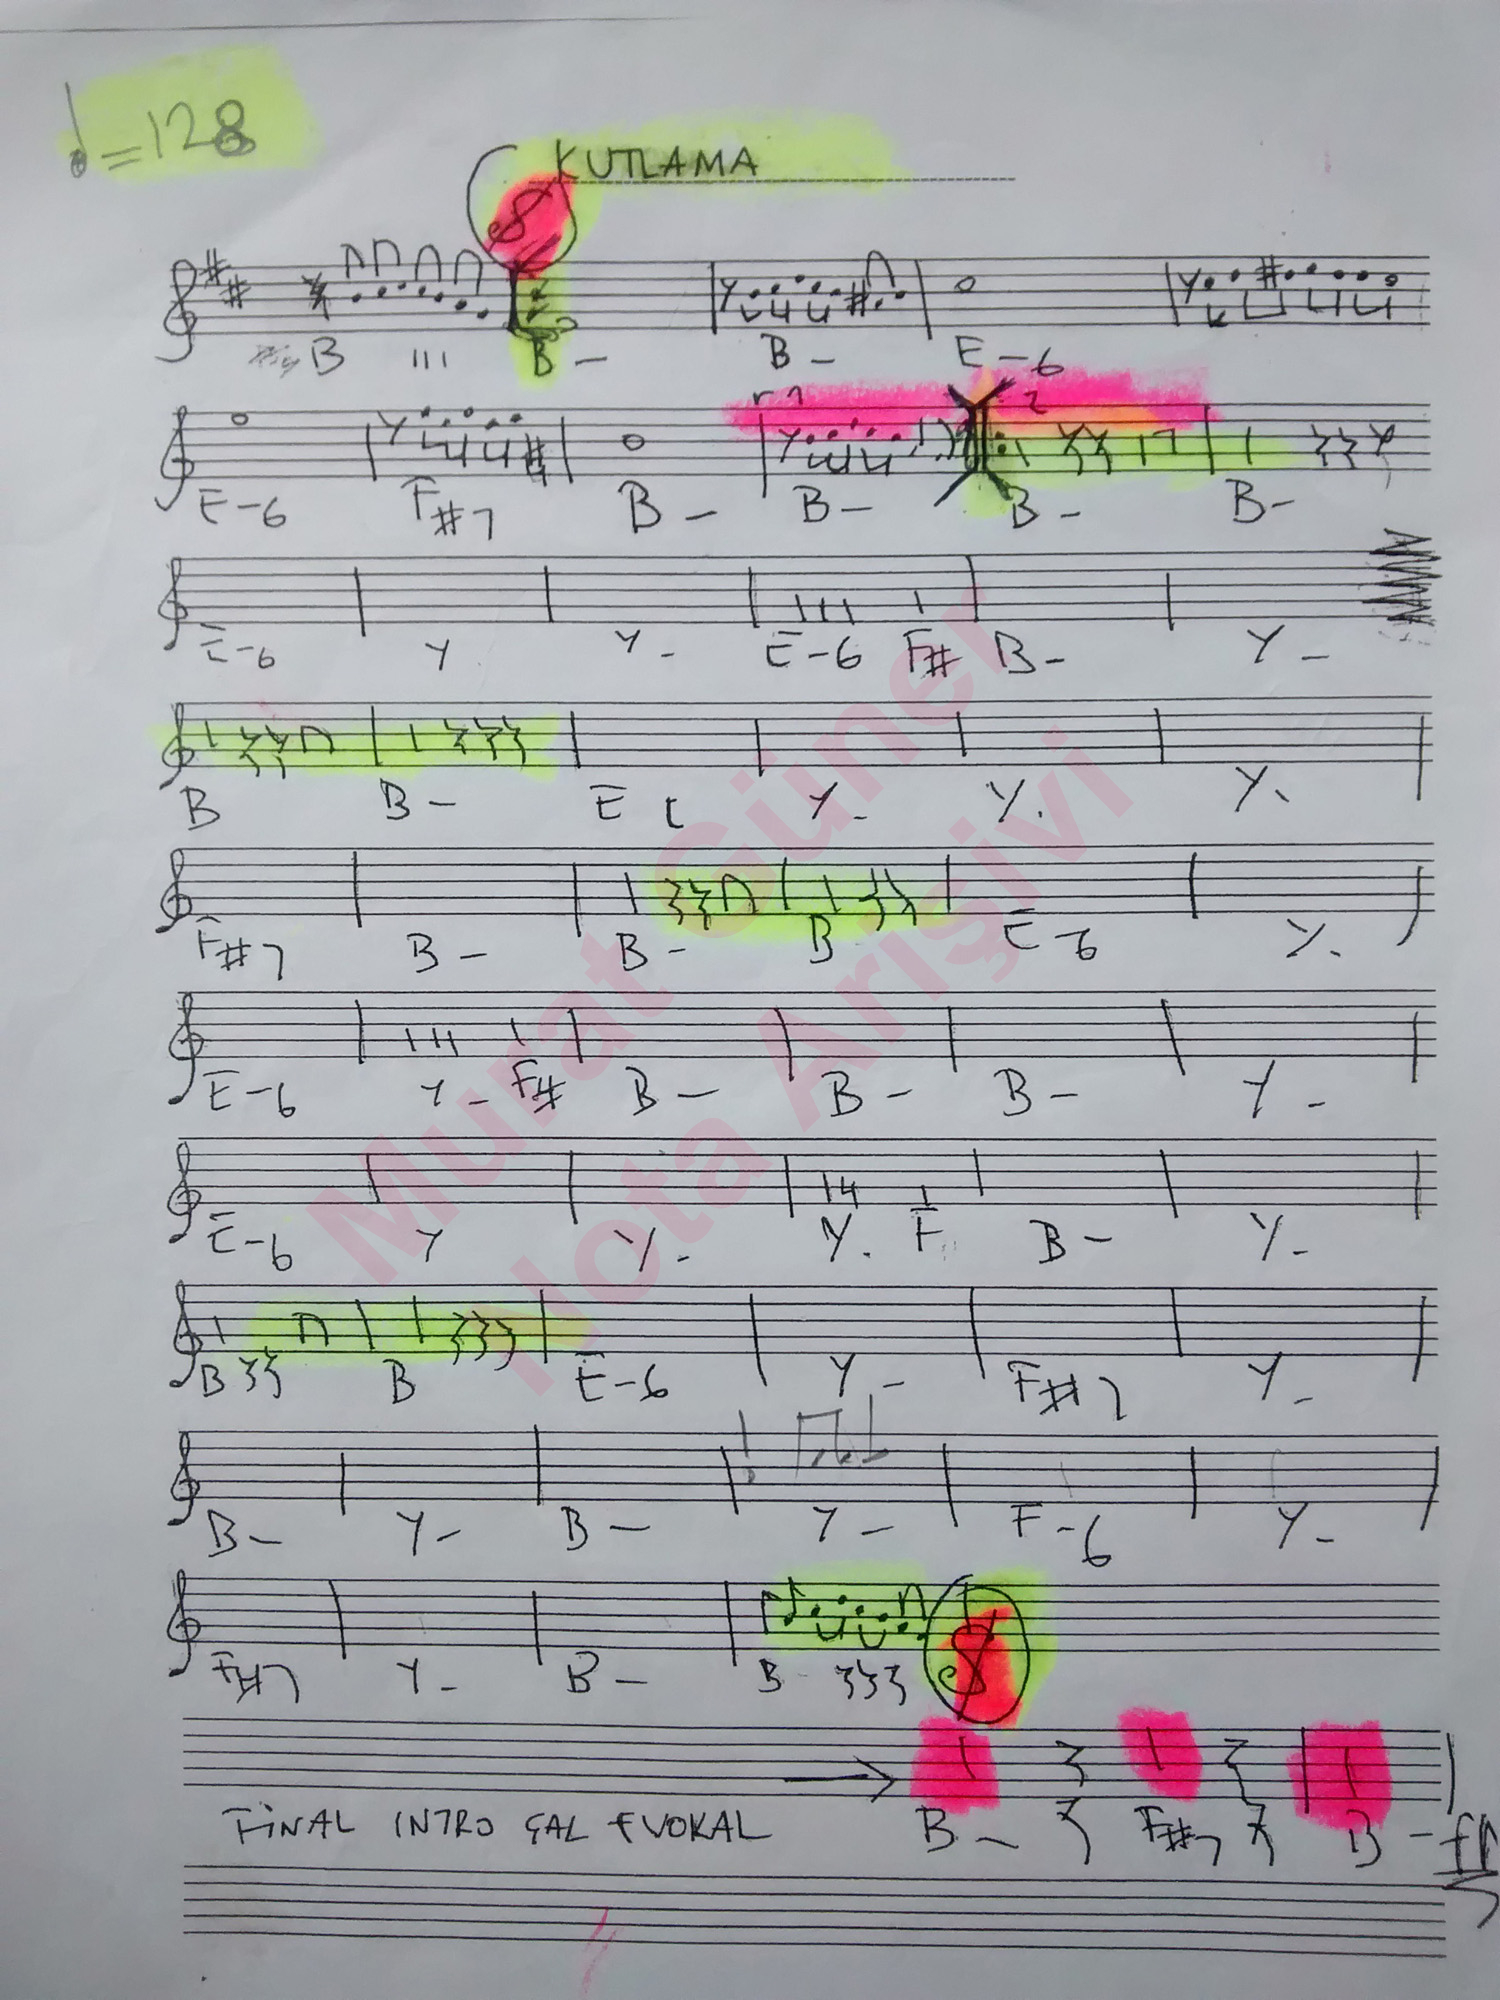 ♩=128
KUTLAMA
B B- B- E-6
E-6 F#7 B- B- B- B-
E-6 Y Y- E-6 F# B- Y-
B B- E Y- Y. Y.
F#7 B- B- B E-6 Y.
E-6 Y- F# B- B- B- Y-
E-6 Y Y- Y. F B- Y-
B B E-6 Y- F#7 Y-
B- Y- B- Y- F-6 Y-
F#7 Y- B- B-
B- F#7 B-
FİNAL INTRO ÇAL
Murat Güner
Nota Arişivi